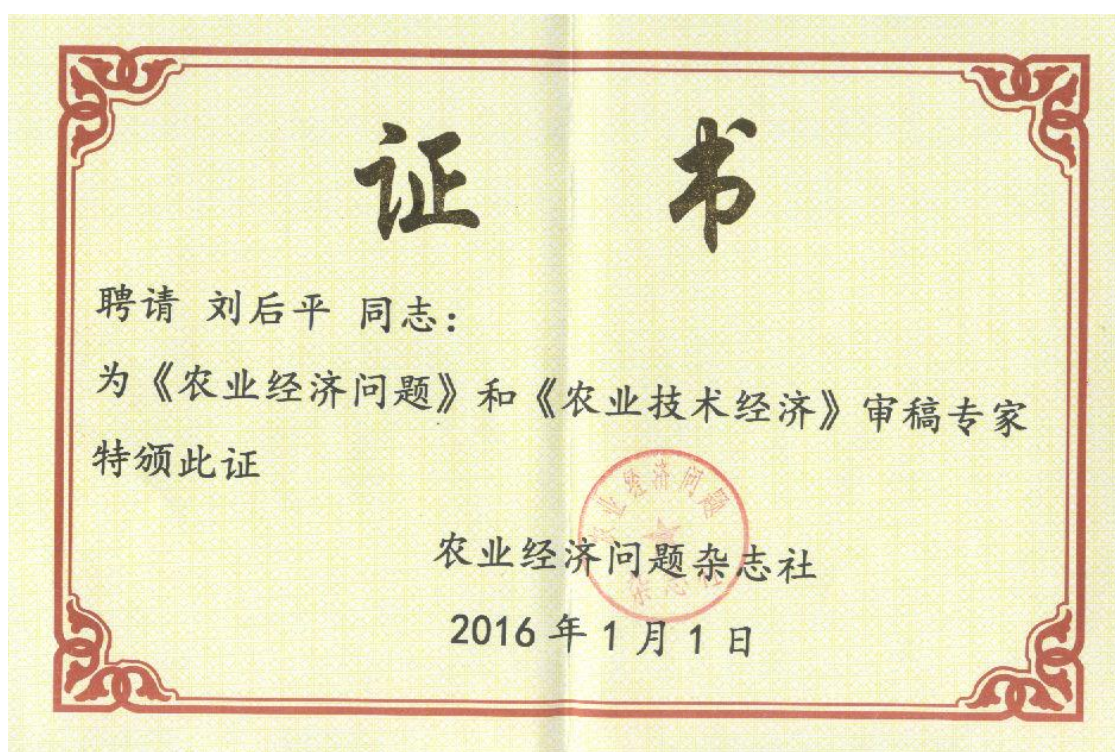 证 书
聘请 刘后平 同志：
为《农业经济问题》和《农业技术经济》审稿专家
特颁此证
农业经济问题
杂志社
农业经济问题杂志社
2016年1月1日